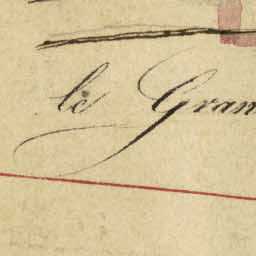 le Gran